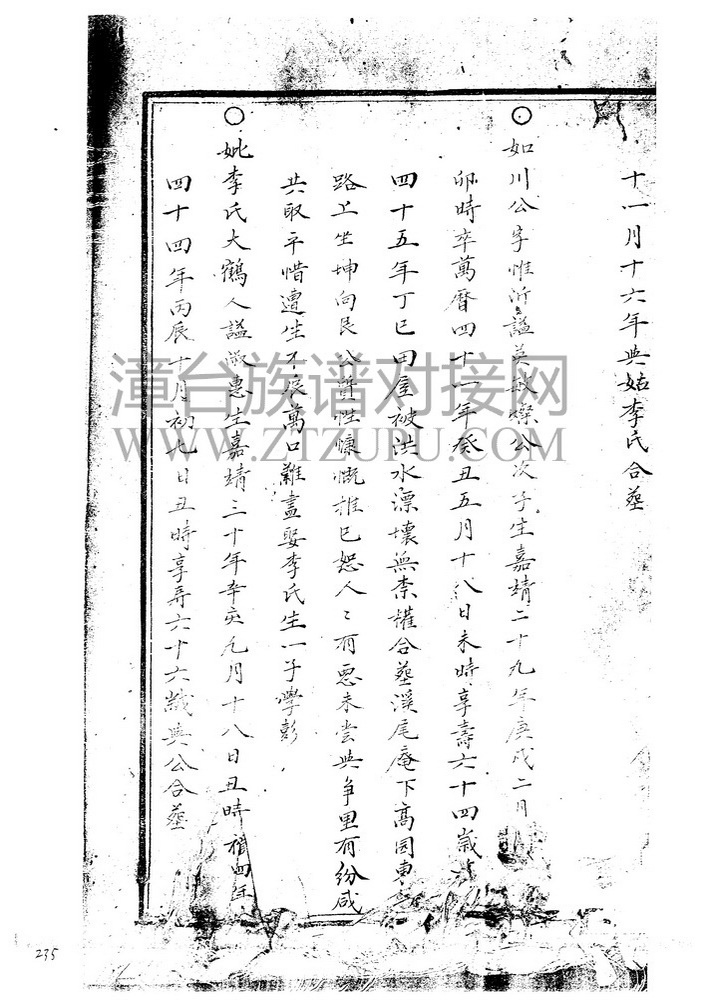 十一月十六年與妣李氏合塟
○如川公字惟沂諡英敏燦公次子生嘉靖二十九年庚戌二月
卯時卒萬曆四十一年癸丑五月十八日未時享壽六十四歲
四十五年丁巳田屋被洪水漂壞無柰權合塟溪尾庵下高園東
路上坐坤向艮公賢性慷慨推己恕人〻有惡未嘗與争里有紛咸
共取平惜遭生不辰萬口難盡娶李氏生一子學彭
○妣李氏大鶴人諡淑惠生嘉靖三十年辛亥九月十八日丑時
四十四年丙辰十月初九日丑時享壽六十六歲與公合塟
漳台族谱对接网
WWW.ZTZUPU.COM
235